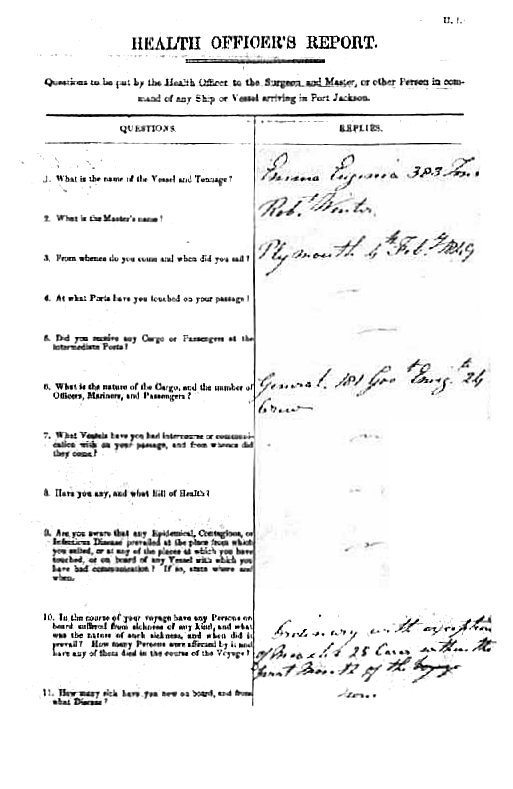 HEALTH OFFICER'S REPORT.
Questions to be put by the Health Officer to the Surgeon and Master, or other Person in com-
mand of any Ship or Vessel arriving in Port Jackson.
QUESTIONS. REPLIES.
1. What is the name of the Vessel and Tonnage? Emma Eugenia 383 Tons
2. What is the Master's name? Robt Winter
3. From whence do you come and when did you sail? Plymouth 4th Feby 1849
4. At what Ports have you touched on your passage?
5. Did you receive any Cargo or Passengers at the
intermediate Ports?
6. What is the nature of the Cargo, and the number of
Officers, Mariners, and Passengers? General. 181 Govt Emigts 24
Crew
7. What Vessels have you had intercourse or communi-
cation with on your passage, and from whence did
they come?
8. Have you any, and what Bill of Health?
9. Are you aware that any Epidemical, Contagious, or
Infectious Disease prevailed at the place from which
you sailed, or at any of the places at which you have
touched, or on board of any Vessel with which you
have had communication? If so, state where and
when.
10. In the course of your voyage have any Persons on
board suffered from sickness of any kind, and what
was the nature of such sickness, and when did it
prevail? How many Persons were affected by it and
have any of them died in the course of the Voyage?
Ordinary with exception
of Measles 25 Cases within the
first Month of the Voyage
11. How many sick have you now on board, and from
what Disease? None